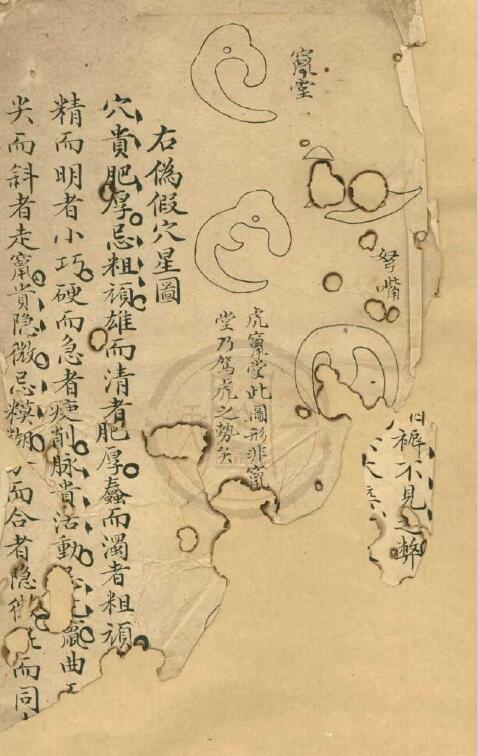 竄堂
弩嘴
裤不見之弊
虎竄堂此圖形非竄
堂乃駕虎之勢矣
右偽假穴星圖
穴貴肥厚忌粗頑雄而清者肥厚蠢而濁者粗頑
精而明者小巧硬而急者痩削脉貴活動忌 曲
尖而斜者走竄貴隐微忌糢糊 而合者隐微 而同